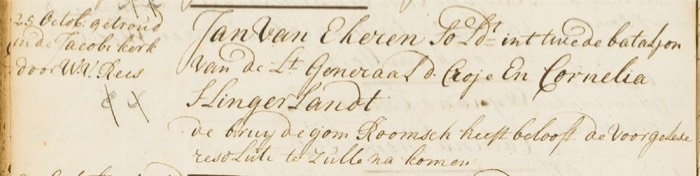 25 octob. getroud
in de Jacobi kerk
door W. V. Rees
Jan van Ekeren Sold.t int twede bataljon
van de Lt Generaal d. Croje En Cornelia
Slinger Landt
de bruydegom Roomsch heeft belooft de voorgelese
resolutie te zulle na komen